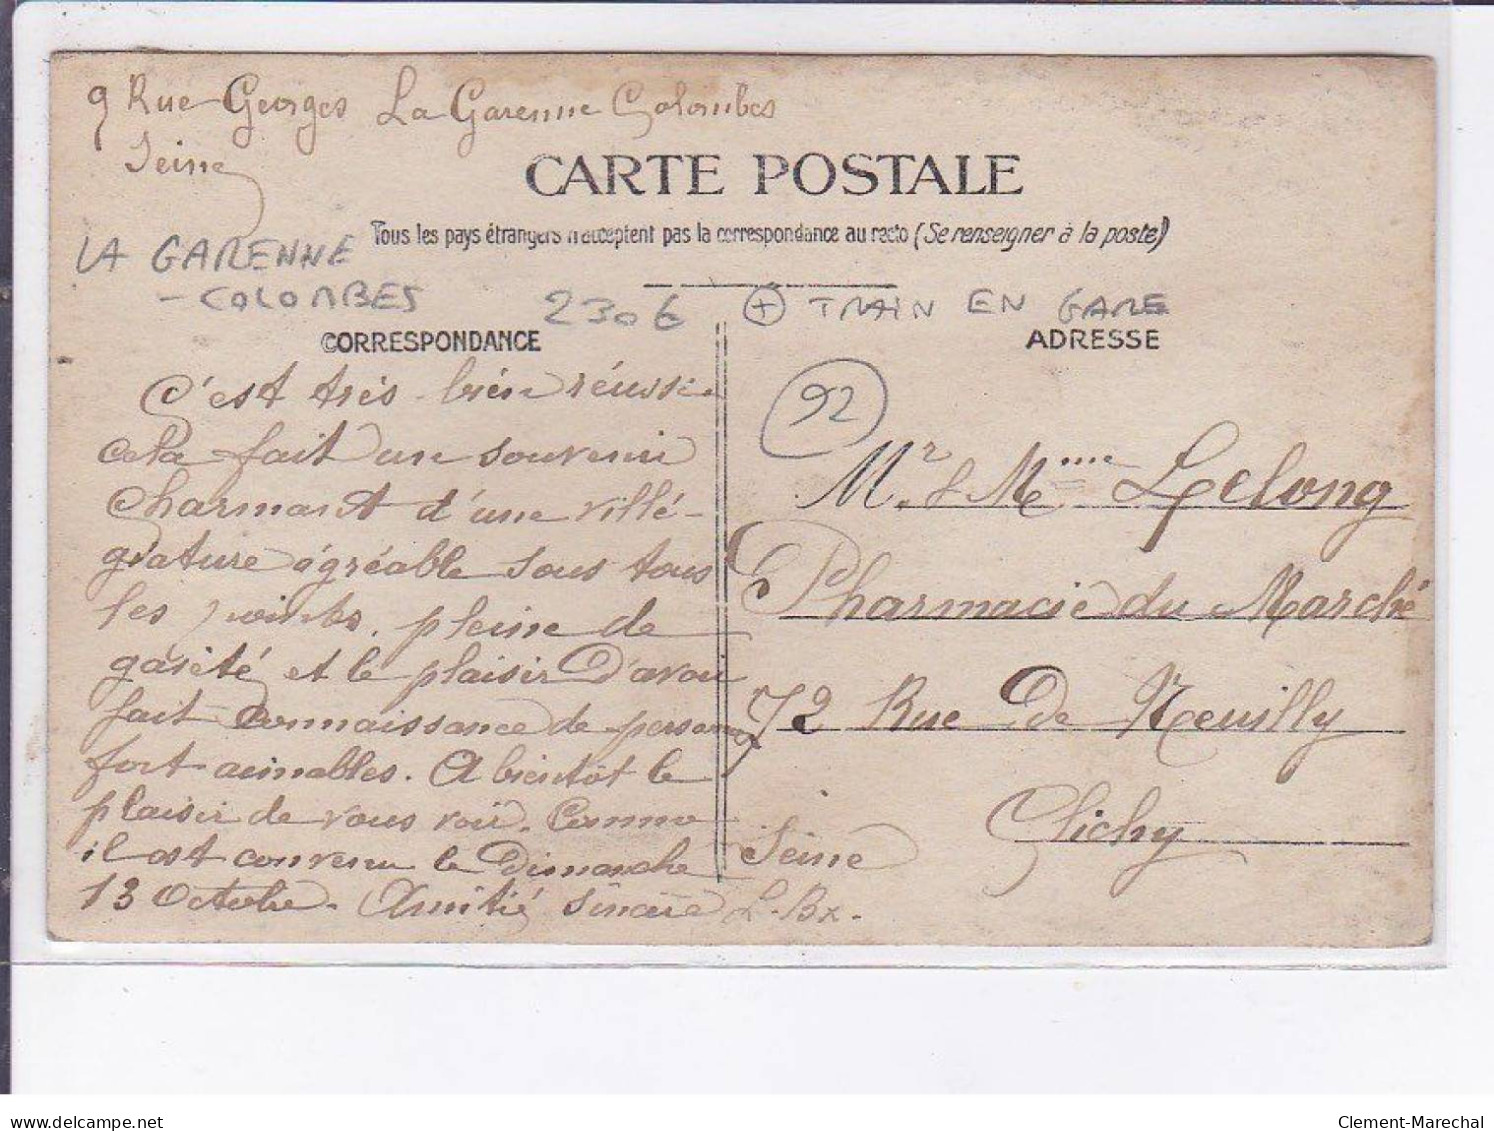 9 Rue Georges La Garenne Colombes
Seine
CARTE POSTALE
Tous les pays étrangers n'acceptent pas la correspondance au recto (Se renseigner à la poste)
LA GARENNE
- COLOMBES
2306
+ TRAIN EN GARE
CORRESPONDANCE
C'est très bien réussi
cela fait un souvenir
charmant d'une villé-
giature agréable sous tous
les points, pleine de
gaieté et le plaisir d'avoir
fait connaissance de personnes
fort aimables. A bientôt le
plaisir de vous voir. Comme
il est convenu le Dimanche
13 Octobre. Amitié sincère L. Bx.
ADRESSE
92
Mr. & Mme Lelong
Pharmacie du Marché
72 Rue De Neuilly
Clichy
Seine
www.delcampe.net
Clement-Marechal